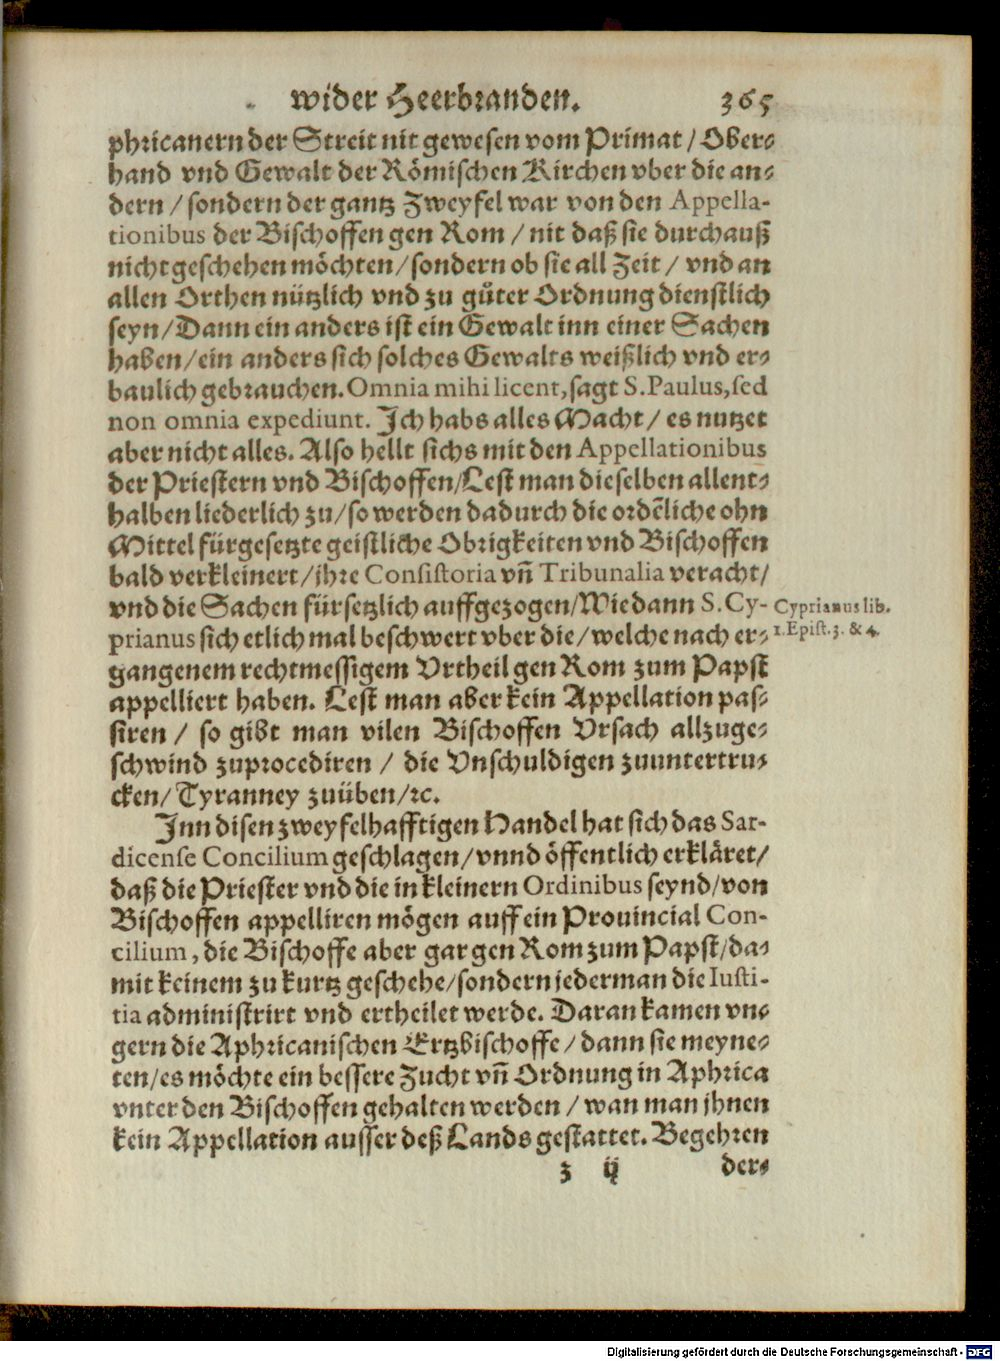 wider Heerbranden. 365
phricanern der Streit nit gewesen vom Primat / Ober⸗
hand vnd Gewalt der Römischen Kirchen vber die an⸗
dern / sondern der gantz Zweyfel war von den Appella-
tionibus der Bischoffen gen Rom / nit daß sie durchauß
nicht geschehen möchten / sondern ob sie all Zeit / vnd an
allen Orthen nützlich vnd zu gůter Ordnung dienstlich
seyn / Dann ein anders ist ein Gewalt inn einer Sachen
haben / ein anders sich solches Gewalts weißlich vnd er⸗
baulich gebrauchen. Omnia mihi licent, sagt S. Paulus, sed
non omnia expediunt. Ich habs alles Macht / es nutzet
aber nicht alles. Also hellt sichs mit den Appellationibus
der Priestern vnd Bischoffen / Lest man dieselben allent⸗
halben liederlich zu / so werden dadurch die ordẽliche ohn
Mittel fürgesetzte geistliche Obrigkeiten vnd Bischoffen
bald verkleinert / ihre Consistoria vñ Tribunalia veracht /
vnd die Sachen fürsetzlich auffgezogen / Wie dann S. Cy-
prianus sich etlich mal beschwert vber die / welche nach er⸗
gangenem rechtmessigem Vrtheil gen Rom zum Papst
appelliert haben. Lest man aber kein Appellation pas⸗
siren / so gibt man vilen Bischoffen Vrsach allzuge⸗
schwind zuprocediren / die Vnschuldigen zuuntertru⸗
cken / Tyranney zuüben / ꝛc.
Cyprianus lib.
1. Epist. 3. & 4.
Inn disen zweyfelhafftigen Handel hat sich das Sar-
dicense Concilium geschlagen / vnnd öffentlich erkläret /
daß die Priester vnd die in kleinern Ordinibus seynd / von
Bischoffen appelliren mögen auff ein Prouincial Con-
cilium, die Bischoffe aber gar gen Rom zum Papst / da⸗
mit keinem zu kurtz geschehe / sondern jederman die Iusti-
tia administrirt vnd ertheilet werde. Daran kamen vn⸗
gern die Aphricanischen Ertzbischoffe / dann sie meyne⸗
ten / es möchte ein bessere Zucht vñ Ordnung in Aphrica
vnter den Bischoffen gehalten werden / wan man jhnen
kein Appellation ausser deß Lands gestattet. Begehren
z ij der⸗
Digitalisierung gefördert durch die Deutsche Forschungsgemeinschaft - DFG